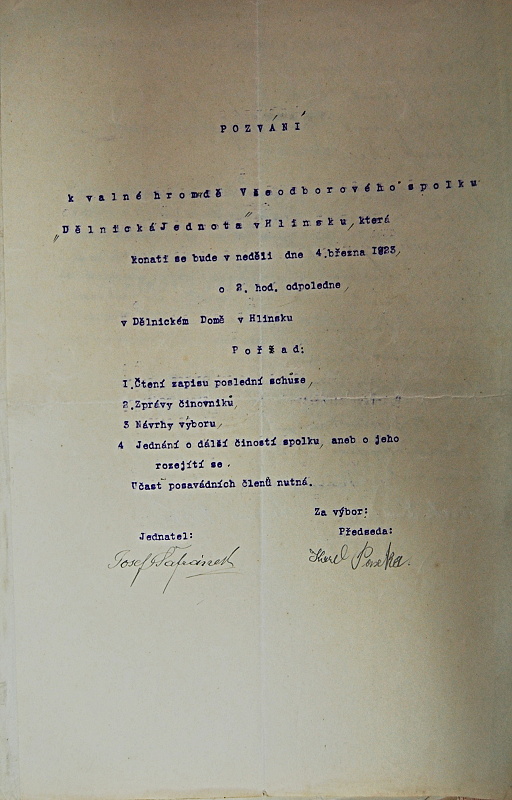 POZVÁNÍ
k valné hromdě Všeodborového spolku
"Dělnická Jednota" v Hlinsku, která
konati se bude v neděli dne 4.března 1923,
o 2. hod. odpoledne,
v Dělnickém Domě v Hlinsku
Pořžad:
1.Čtení zapisu poslední schůze,
2.Zprávy činovníků,
3 Návrhy výboru,
4 Jednání o dálší činosti spolku, aneb o jeho
rozejítí se.
Účasť posavádních členů nutná.
Za výbor:
Jednatel: Předseda:
Josef Šafránek Karel